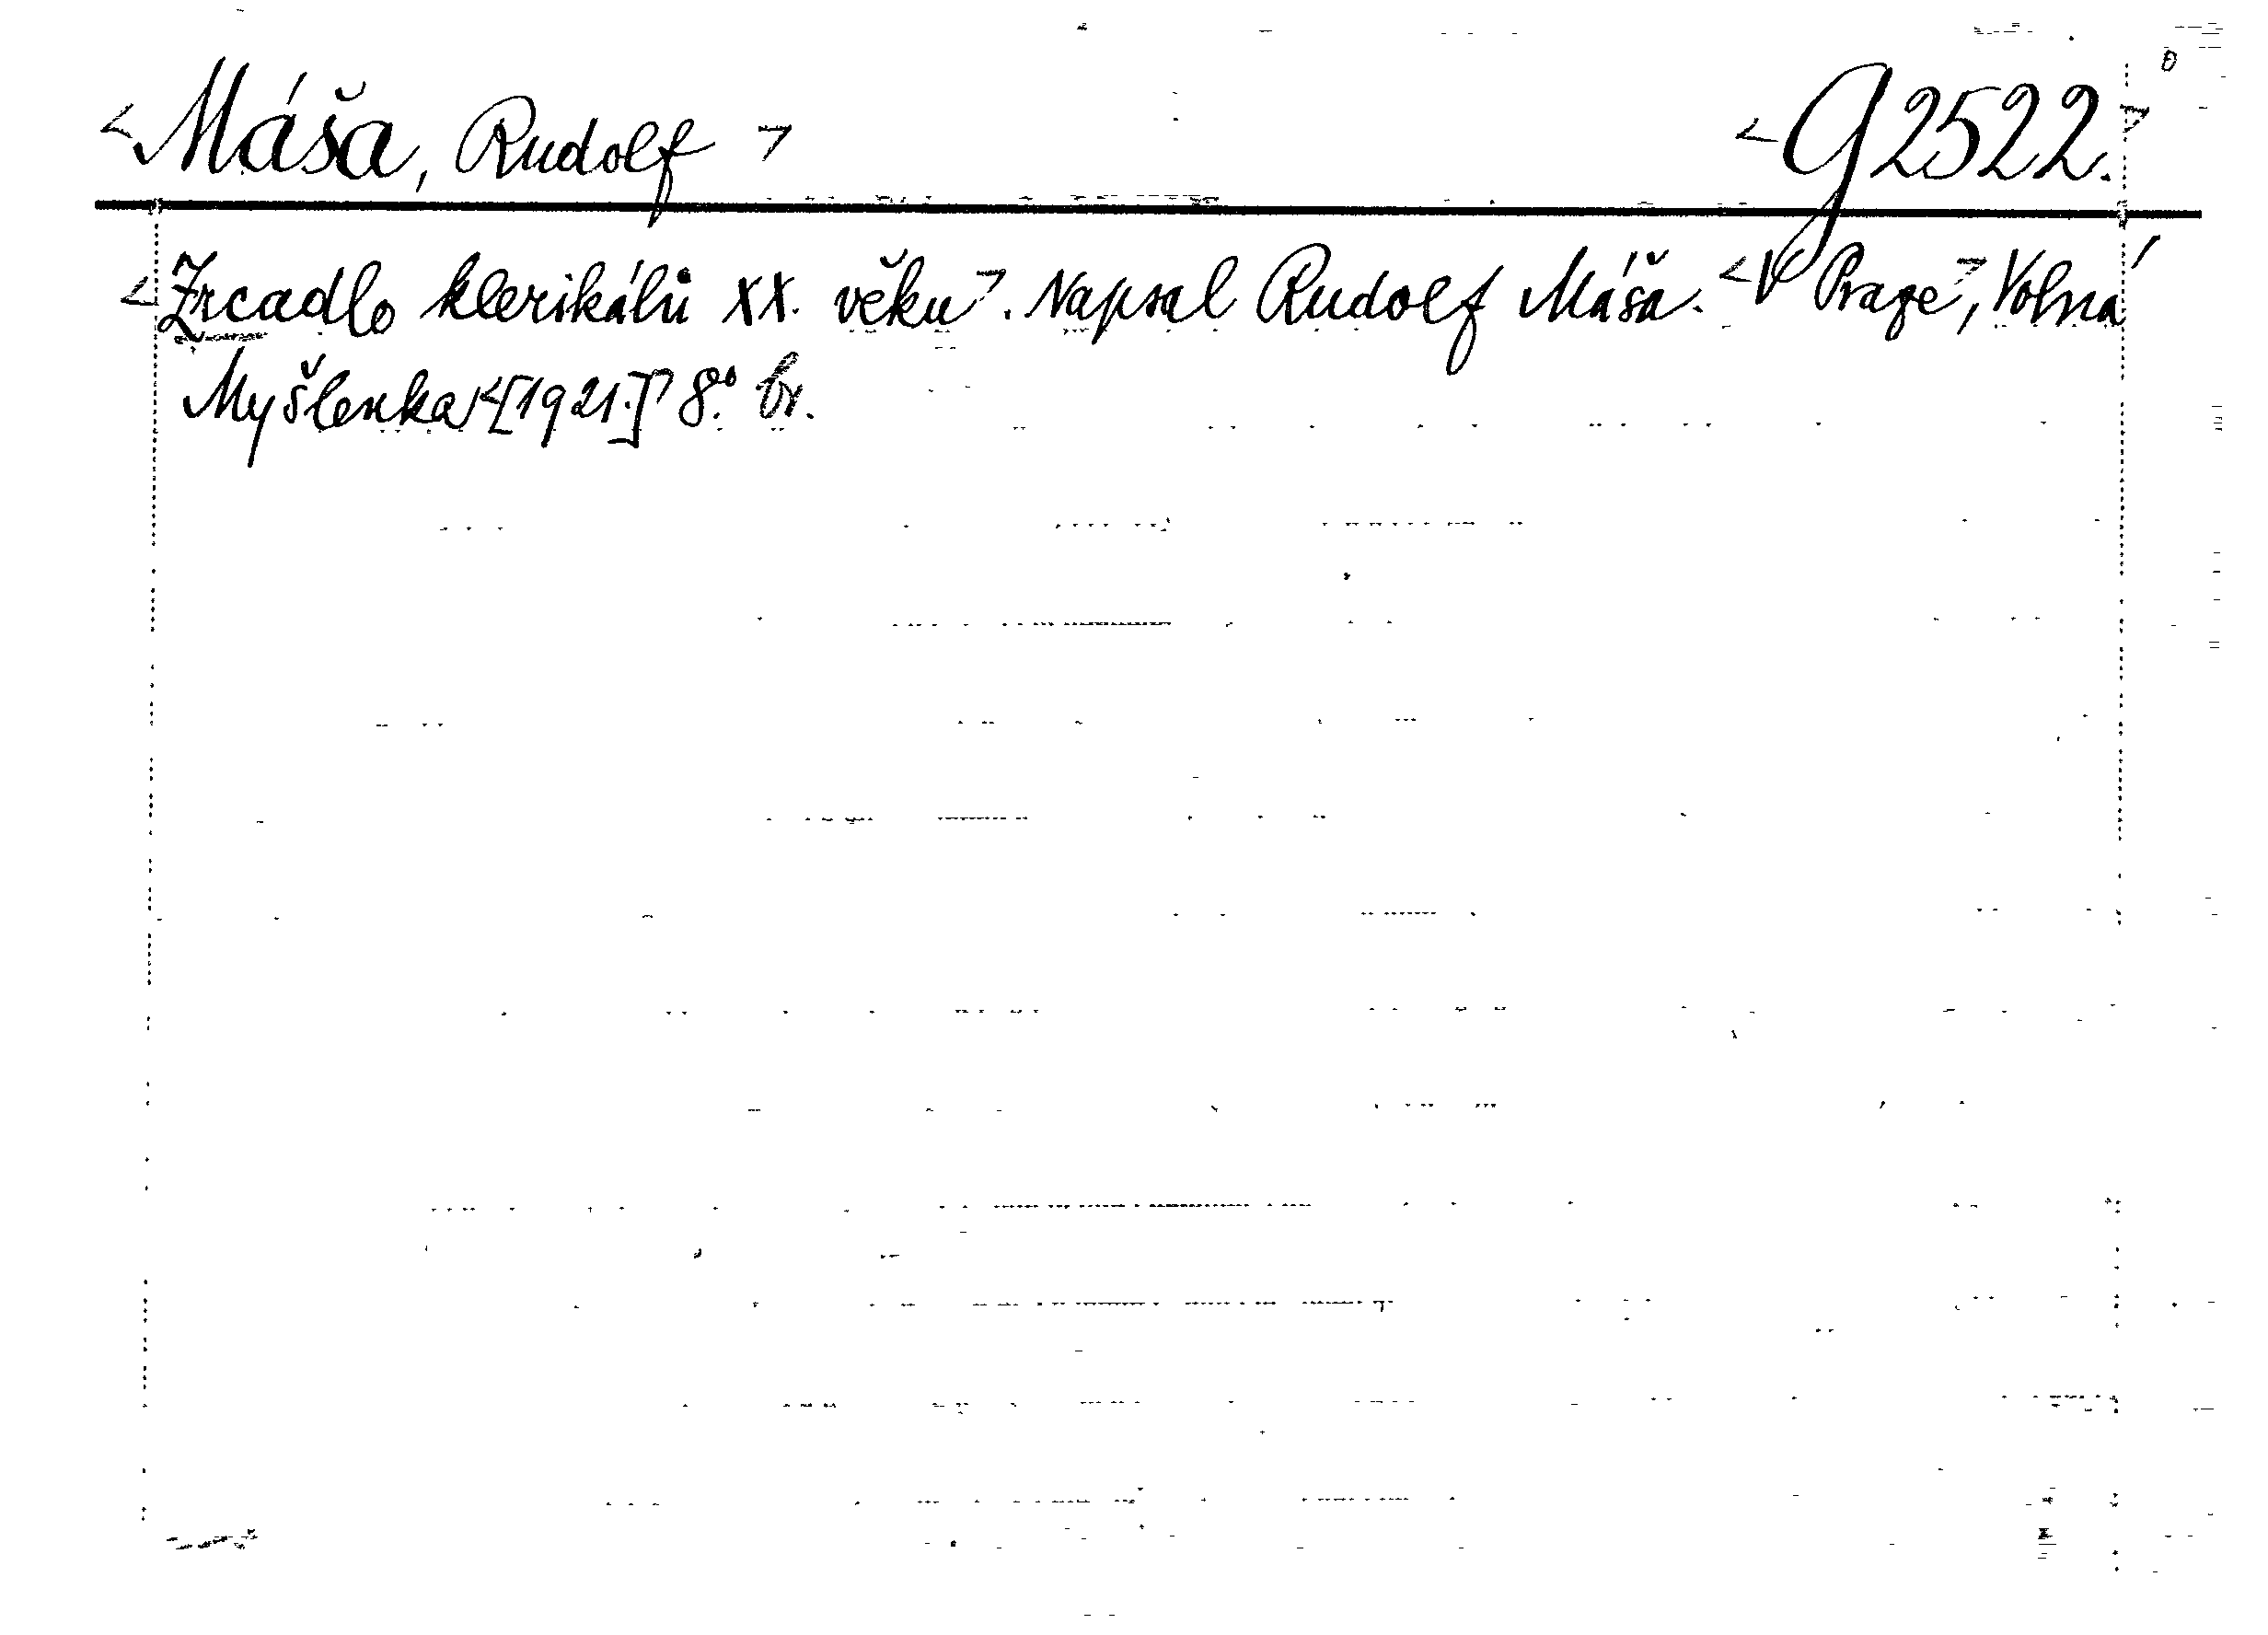 <Máša, Rudolf> <G 2522.>
<Zrcadlo klerikálů XX. věku>. Napsal Rudolf Máša. <V Praze>, Volná
Myšlenka <[1921.]> 8.° br.